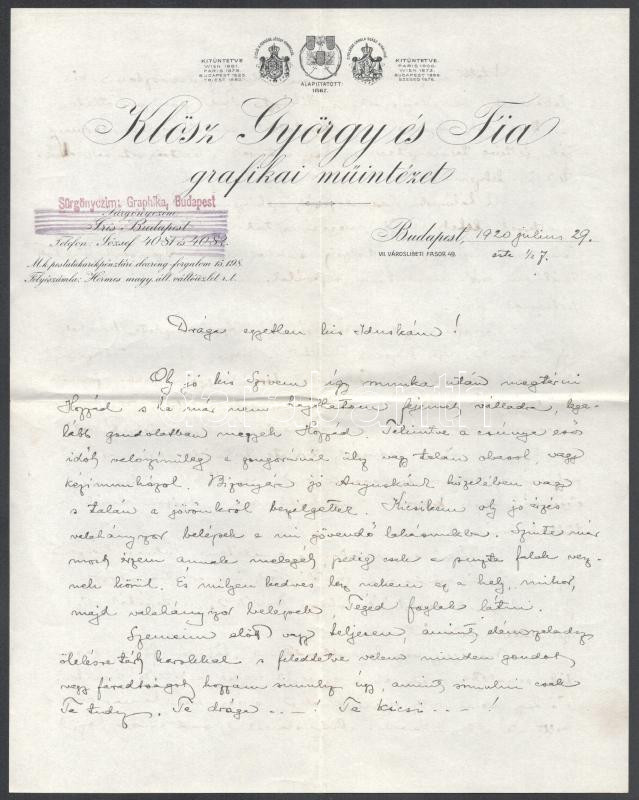 KITÜNTETVE
WIEN 1881.
PARIS 1878.
BUDAPEST 1885.
TRIEST 1882.
ALAPITTATOTT:
1867.
KITÜNTETVE
PARIS 1900.
WIEN 1873.
BUDAPEST 1896.
SZEGED 1876.
Klösz György és Fia
grafikai müintézet
Sürgönyczim: Graphika, Budapest
Sürgönyczim:
Iris-Budapest
Telefon: József 40·81 és 40·82.
M. k. postatakarékpénztári clearing-forgalom 15,198.
Folyószámla: Hermes magy. ált. váltóüzlet r. t.
Budapest, 1920 julius 29.
VII. VÁROSLIGETI FASOR 49.
este ½ 7.
Drága egyetlen kis Iduskám!
Oly jó kis Szivem így munka után megtérni
Hozzád s ha már nem hajthatom fejemet válladra, lega-
lább gondolatban megyek Hozzád. Tekintve a csúnya esős
időt valószinüleg a zongoránál ülsz vagy talán olvasol, vagy
kézimunkázol. Bizonyára jó Anyuskánk közelében vagy
s talán a jövönkről beszélgettek. Kicsikém oly jó érzés
valahányszor belépek a mi jövendő lakásunkba. Szinte már
most érzem annak melegét, pedig csak a puszta falak vesz-
nek körül. És milyen kedves lesz nekem ez a hely, mikor,
majd valahányszor belépek, Téged foglak látni.
Szemeim előtt vagy teljesen, amint elém szaladsz
ölelésre tárt karokkal s feledtetve velem minden gondot
vagy fáradtságot hozzám simulsz úgy, amint simulni csak
Te tudsz. Te drága ...! Te kicsi ...!